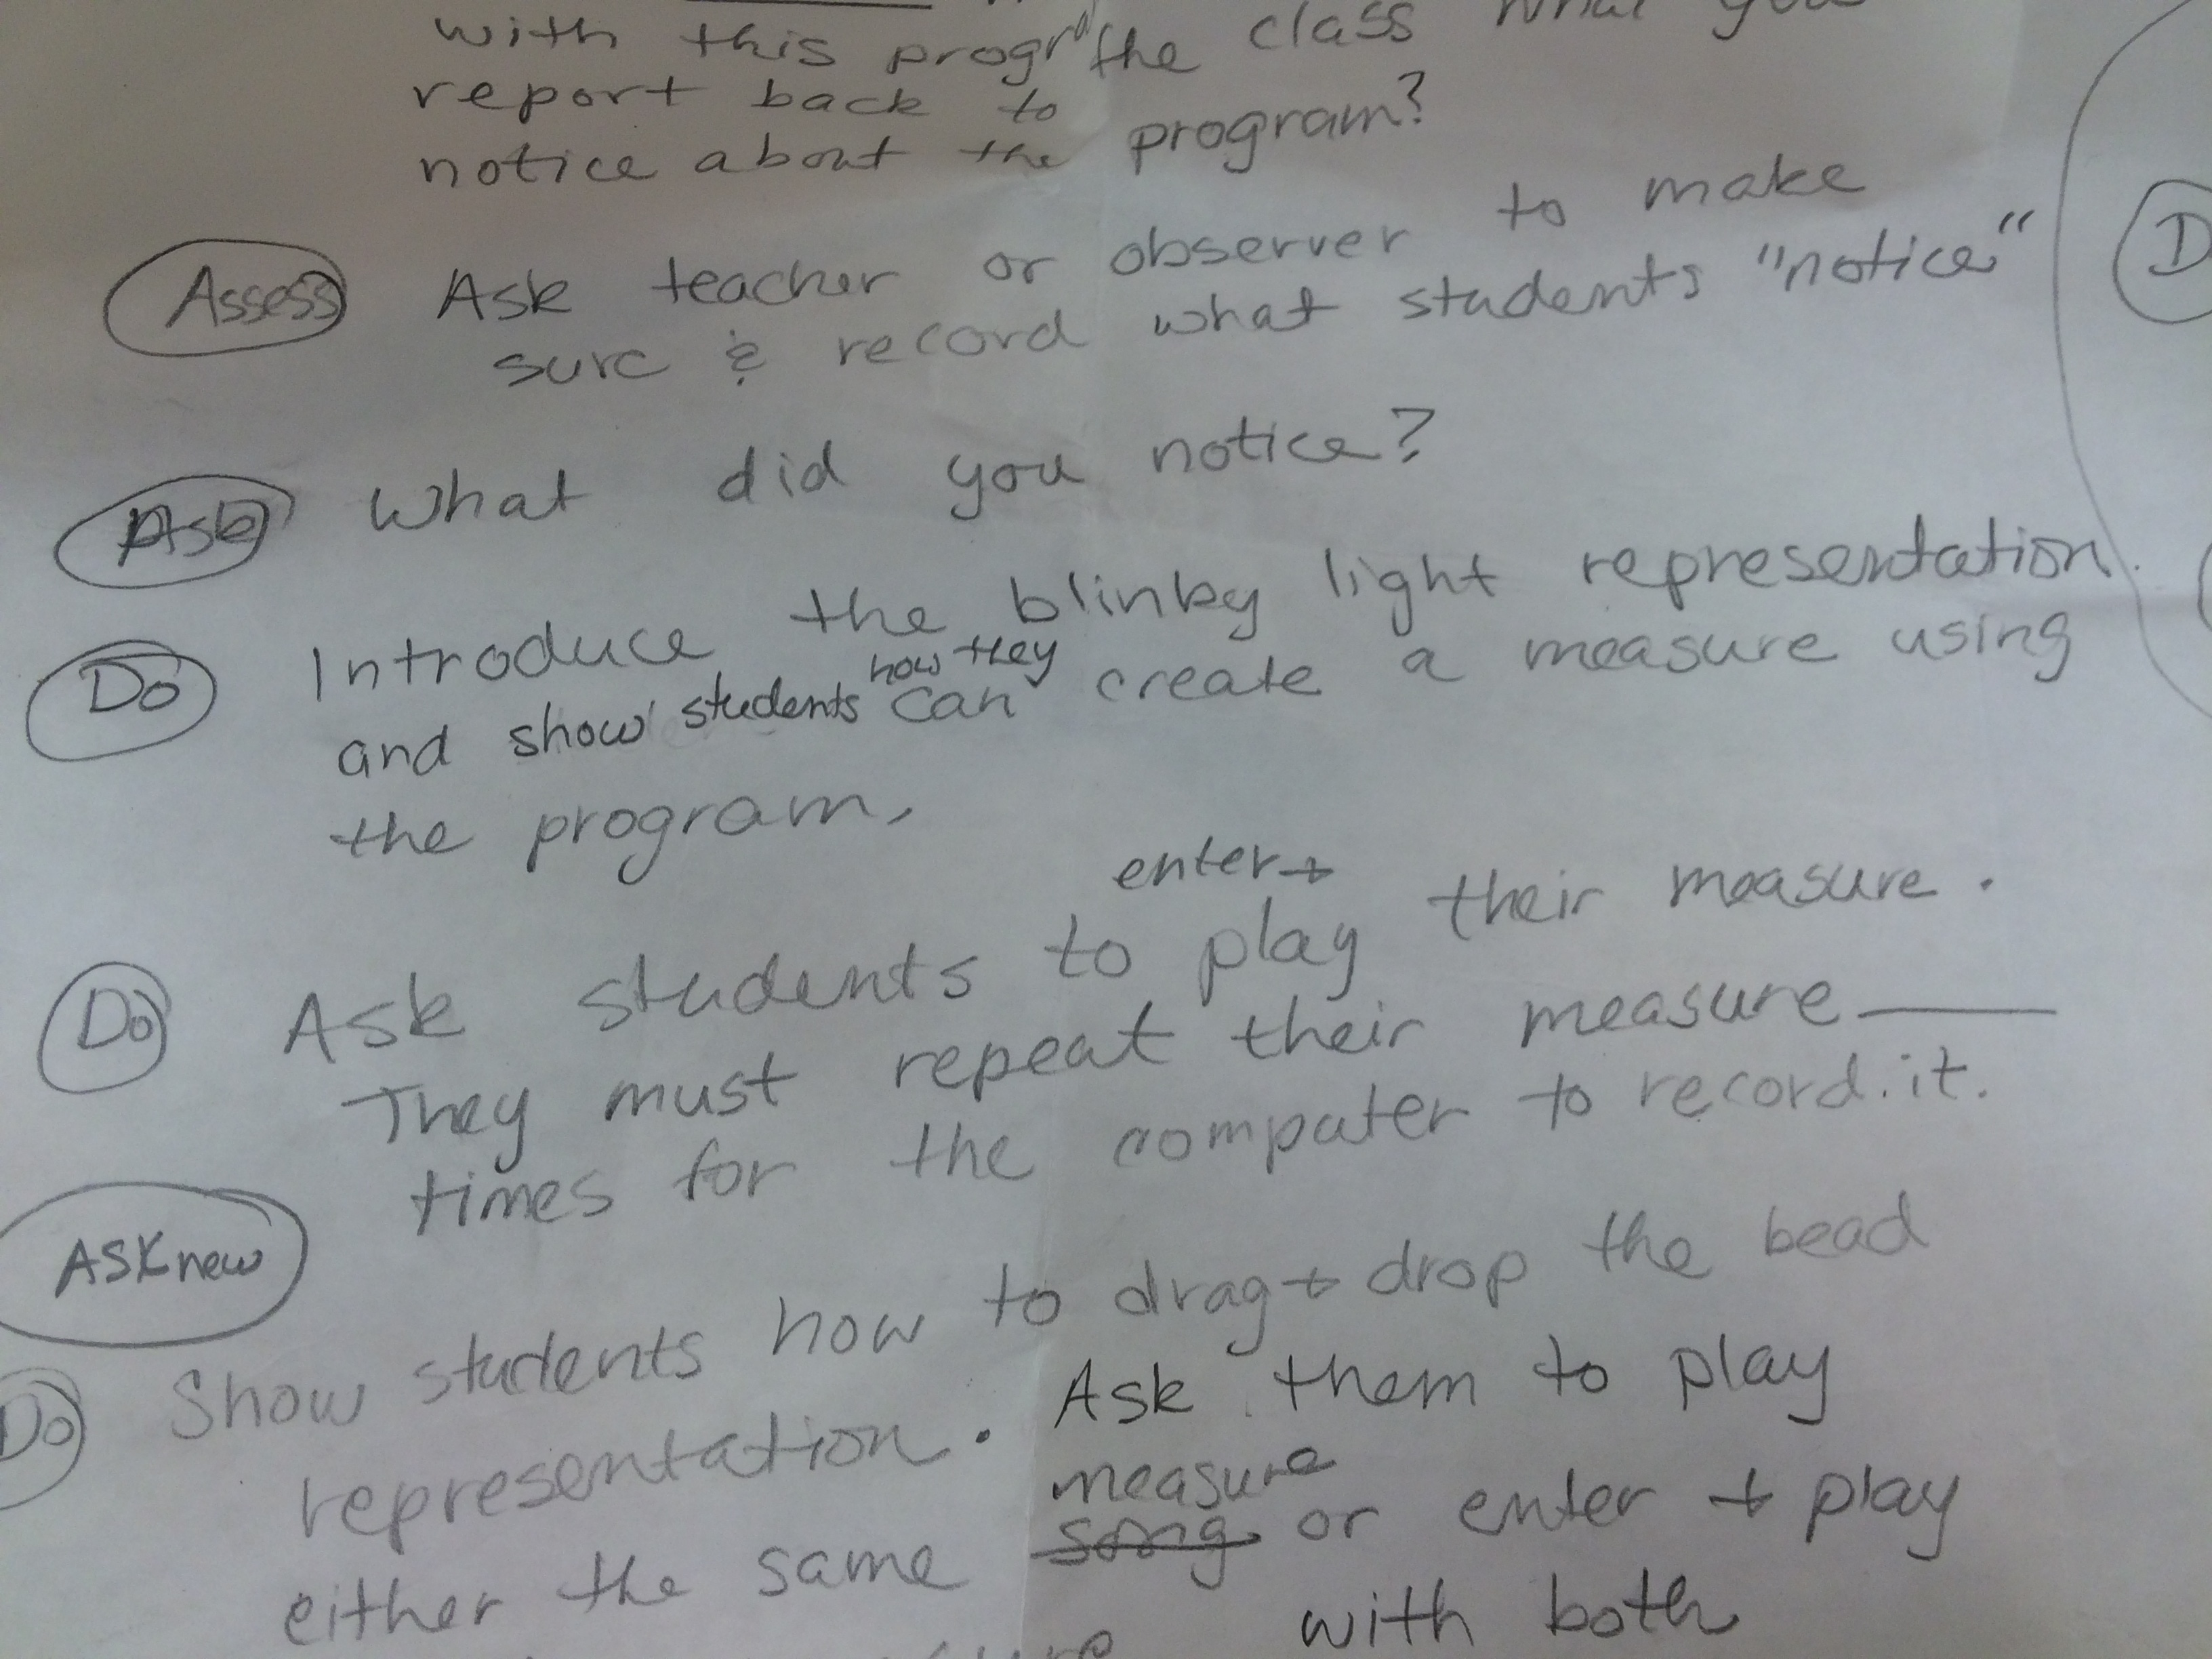 with this progr the class what you
report back to
notice about the program?
Assess Ask teacher or observer to make
sure & record what students "notice"
D
Ask What did you notice?
Do Introduce the blinky light representation.
how they
and show students can create a measure using
the program.
enter +
Do Ask students to play their measure.
They must repeat their measure ____
times for the computer to record it.
ASK new
Do Show students how to drag + drop the bead
representation. Ask them to play
measure
either the same song or enter + play
with both